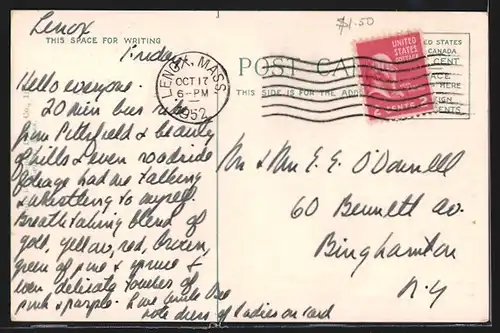 Lenox
THIS SPACE FOR WRITING
Friday
Hello everyone.
20 min bus ride
from Pittsfield & beauty
of hills & even roadside
foliage had me talking
& whistling to myself.
Breathtaking blend of
gold, yellow, red, brown,
green of pine & spruce &
even delicate touches of
pink & purple. Love
note dress of ladies on card
$1.50
LENOX, MASS.
OCT 17
6-PM
1952
POST CARD
THIS SIDE IS FOR THE ADDRESS
UNITED
STATES
POSTAGE
2 CENTS 2
STATES
CANADA
CENT
HERE
CENTS
Mr & Mrs E. E. O'Donnell
60 Bennett av.
Binghamton
N.Y